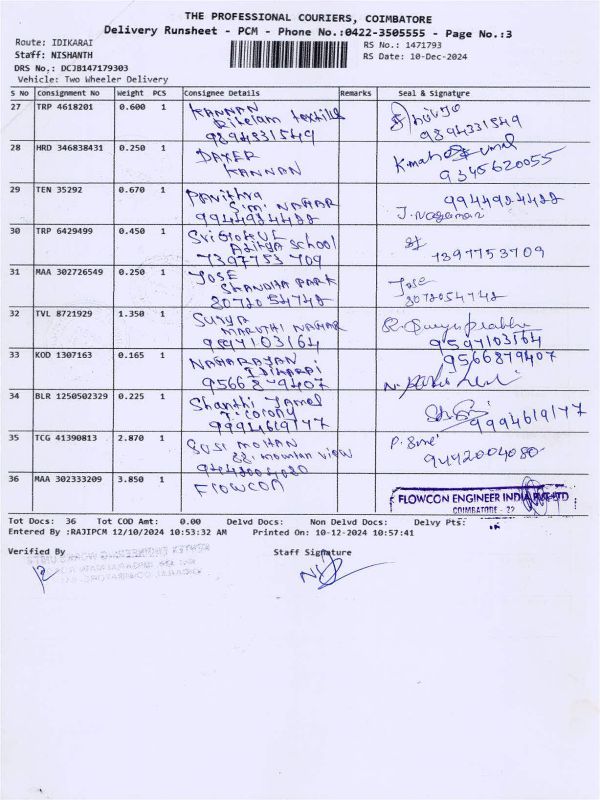 THE PROFESSIONAL COURIERS, COIMBATORE
Delivery Runsheet - PCM - Phone No.:0422-3505555 - Page No.:3
Route: IDIKARAI
RS No.: 1471793
Staff: NISHANTH
RS Date: 10-Dec-2024
DRS No.: DCJB147179303
Vehicle: Two Wheeler Delivery
S No Consignment No Weight PCS Consignee Details Remarks Seal & Signature
27 TRP 4618201 0.600 1 KANNAN
textile
9894331549
9894331549
28 HRD 346838431 0.250 1 DAXER
KANNAN
9345620055
29 TEN 35292 0.670 1 Panithra
S.M. NAGAR
9944924422
9944924422
J. Nagamani
30 TRP 6429499 0.450 1 Sri GOKUL
Aditya School
7397753709
7397753709
31 MAA 302726549 0.250 1 JOSE
PARK
8072054742
Jose
8072054742
32 TVL 8721929 1.350 1 SURYA
MARUTHI NAGAR
9597103164
9597103164
33 KOD 1307163 0.165 1 NAGARAYAN
IDIKARAI
9566879407
9566879407
34 BLR 1250502329 0.225 1 Shanthi
T. Colony
9994619177
9994619177
35 TCG 41390813 2.870 1 SASI MOHAN
mountain view
9442004080
9442004080
36 MAA 302333209 3.850 1 FLOWCON
FLOWCON ENGINEER INDIA PVT LTD
COIMBATORE - 22
Tot Docs: 36 Tot COD Amt: 0.00 Delvd Docs: Non Delvd Docs: Delvy Pts:
Entered By :RAJIPCM 12/10/2024 10:53:32 AM Printed On: 10-12-2024 10:57:41
Verified By Staff Signature